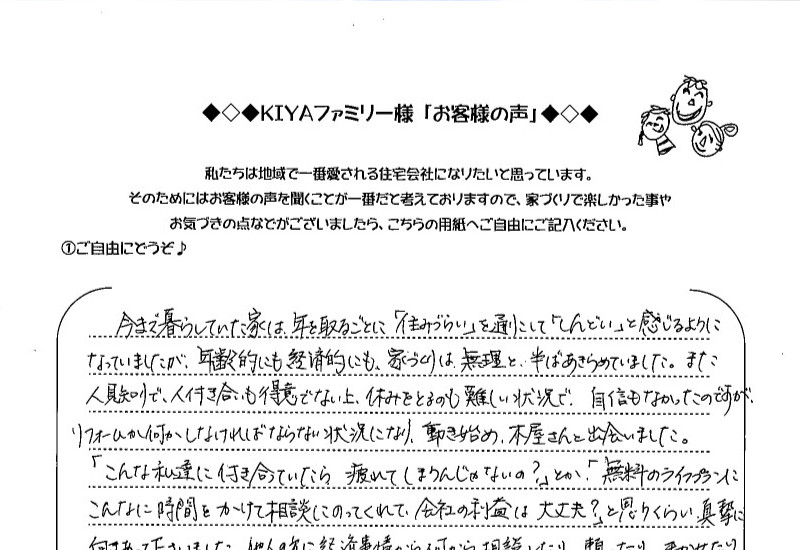 ◆◇◆KIYAファミリー様「お客様の声」◆◇◆
私たちは地域で一番愛される住宅会社になりたいと思っています。
そのためにはお客様の声を聞くことが一番だと考えておりますので、家づくりで楽しかった事や
お気づきの点などがございましたら、こちらの用紙へご自由にご記入ください。
①ご自由にどうぞ♪
今まで暮らしていた家は、年を取るごとに「住みづらい」を通りこして「しんどい」と感じるように
なっていましたが、年齢的にも経済的にも、家づくりは無理と、半ばあきらめていました。また
人見知りで、人付き合いも得意でない上、休みをとるのも難しい状況で、自信もなかったのですが、
リフォームか何かしなければならない状況になり、動き始め、木屋さんと出会いました。
「こんな私達に付き合っていたら 疲れてしまうんじゃないの?」とか、「無料のライフプランに
こんなに時間をかけて相談にのってくれて、会社の利益は大丈夫?」と思うくらい真摯に
向きあって下さいました。